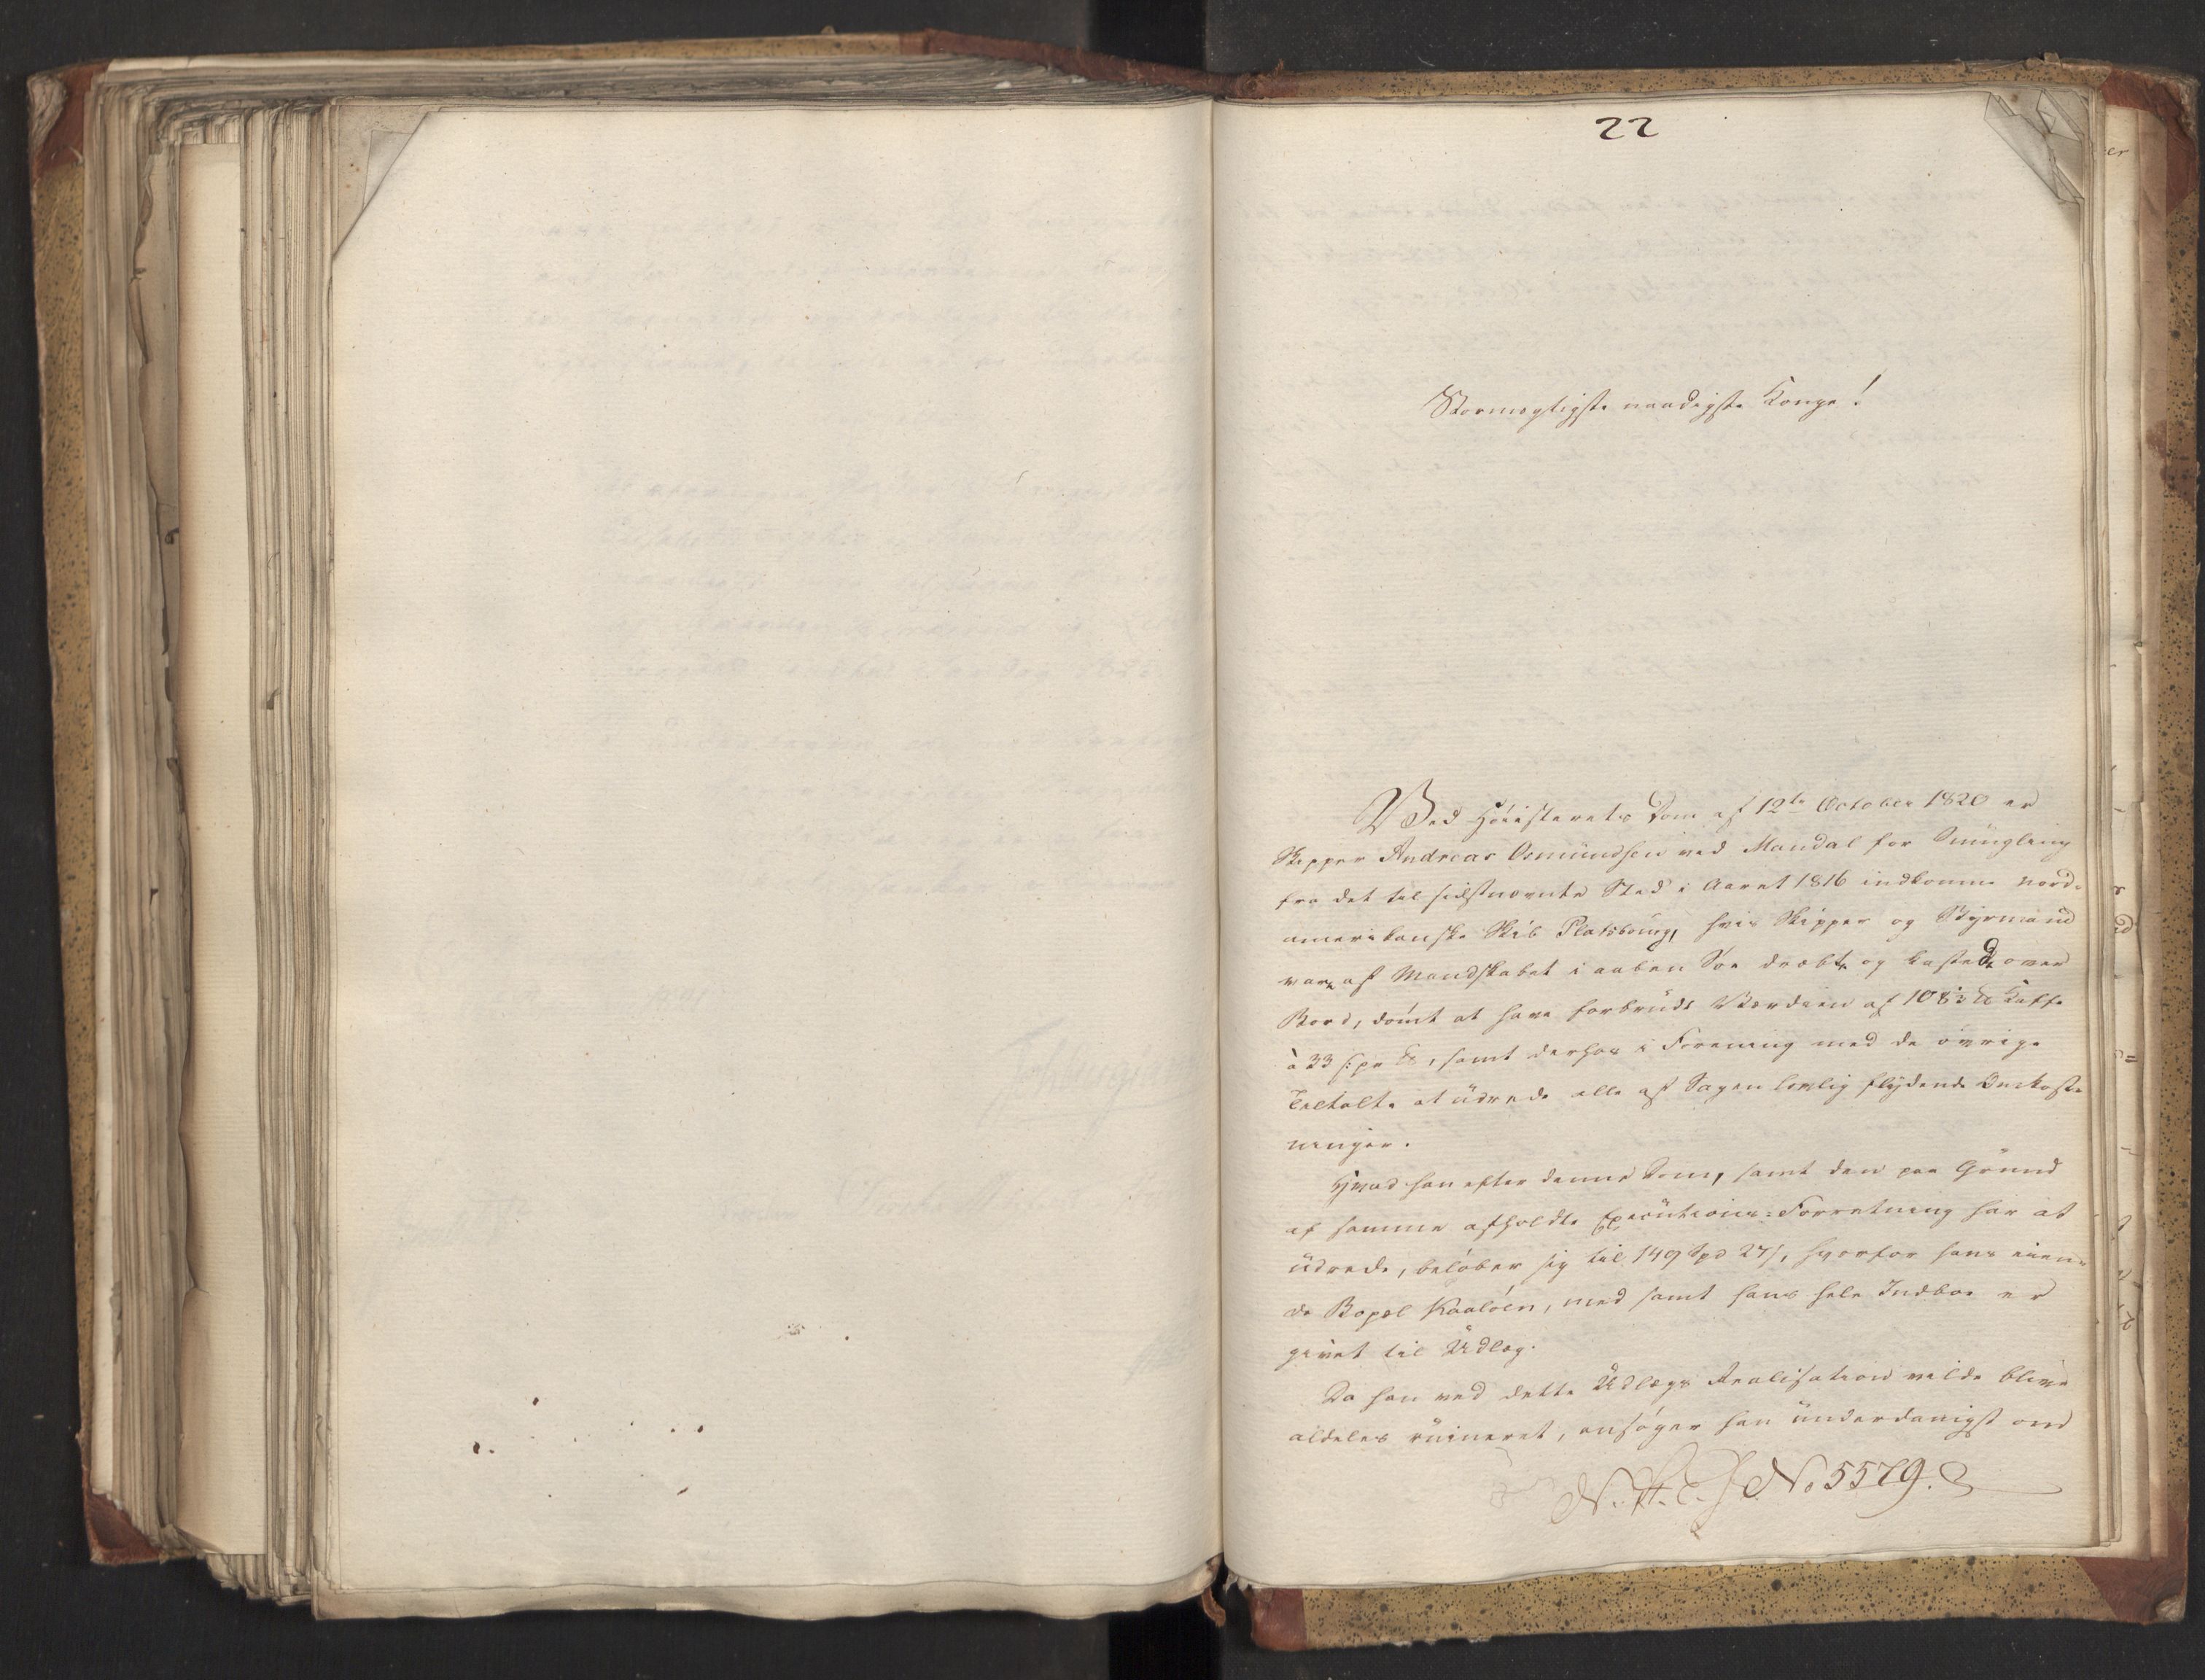 22
Stormægtigste naadigste Konge!
Ved Höiesterets Dom af 12te October 1820 er
Skipper Andreas Osmundsen ved Mandal for Smugling
fra det til sidstnævnte Sted i Aaret 1816 indkomne nord-
amerikanske Skib Platsbourg, hvis Skipper og Styrmand
vare af Mandskabet i aaben Søe dræbte og kastede over
Bord, dömt at have forbrudt Værdien af 108½ ℔ Kaffe
à 33 s: pr ℔, samt derhos i Forening med de övrige
Tiltalte at udrede alle af Sagen lovlig flydende Omkost-
ninger.
Hvad han efter denne Dom, samt den paa Grund
af samme afholdte Executions-Forretning har at
udrede, belöber sig til 149 Spd 27 s, hvorfor hans eien-
de Bopæl Kaalöen, med samt hans hele Indboe er
givet til Udlæg.
Da han ved dette Udlægs Realisation vilde blive
aldeles ruineret, ansöger han underdanigst om
No 5579.